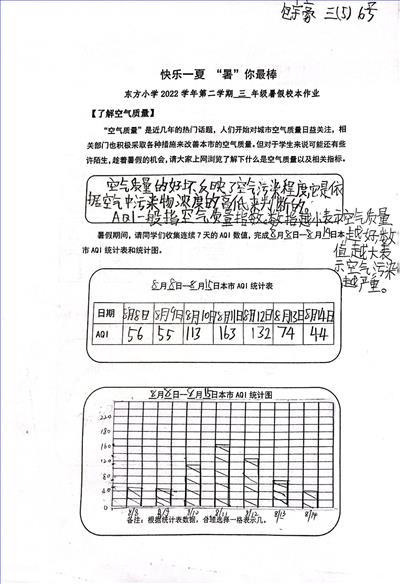 包宇豪 三(5) 6号
快乐一夏 “暑”你最棒
东方小学2022学年第二学期_三_年级暑假校本作业
【了解空气质量】
“空气质量”是近几年的热门话题，人们开始对城市空气质量日益关注，相
关部门也积极采取各种措施来改善本市的空气质量。但对于学生来说可能还有些
许陌生，趁着暑假的机会，请大家上网浏览了解下什么是空气质量以及相关指标。
空气质量的好坏反映了空气污染程度，它是依
据空气中污染物浓度的高低来判断的。
AQI一般指空气质量指数。数指越小表示空气质量
越好，数
值越大表
示空气污染
越严重。
暑假期间，请同学们收集连续7天的AQI数值，完成8月8日—8月14日本
市AQI统计表和统计图。
8月8日—8月15日本市AQI统计表
日期 8月8日 8月9日 8月10日 8月11日 8月12日 8月13日 8月14日
AQI 56 55 113 163 132 74 44
8月8日—8月15日本市AQI统计图
220
180
160
140
120
80
40
0
8/8 8/9 8/10 8/11 8/12 8/13 8/14
备注：根据统计表数据，合理选择一格表示几。